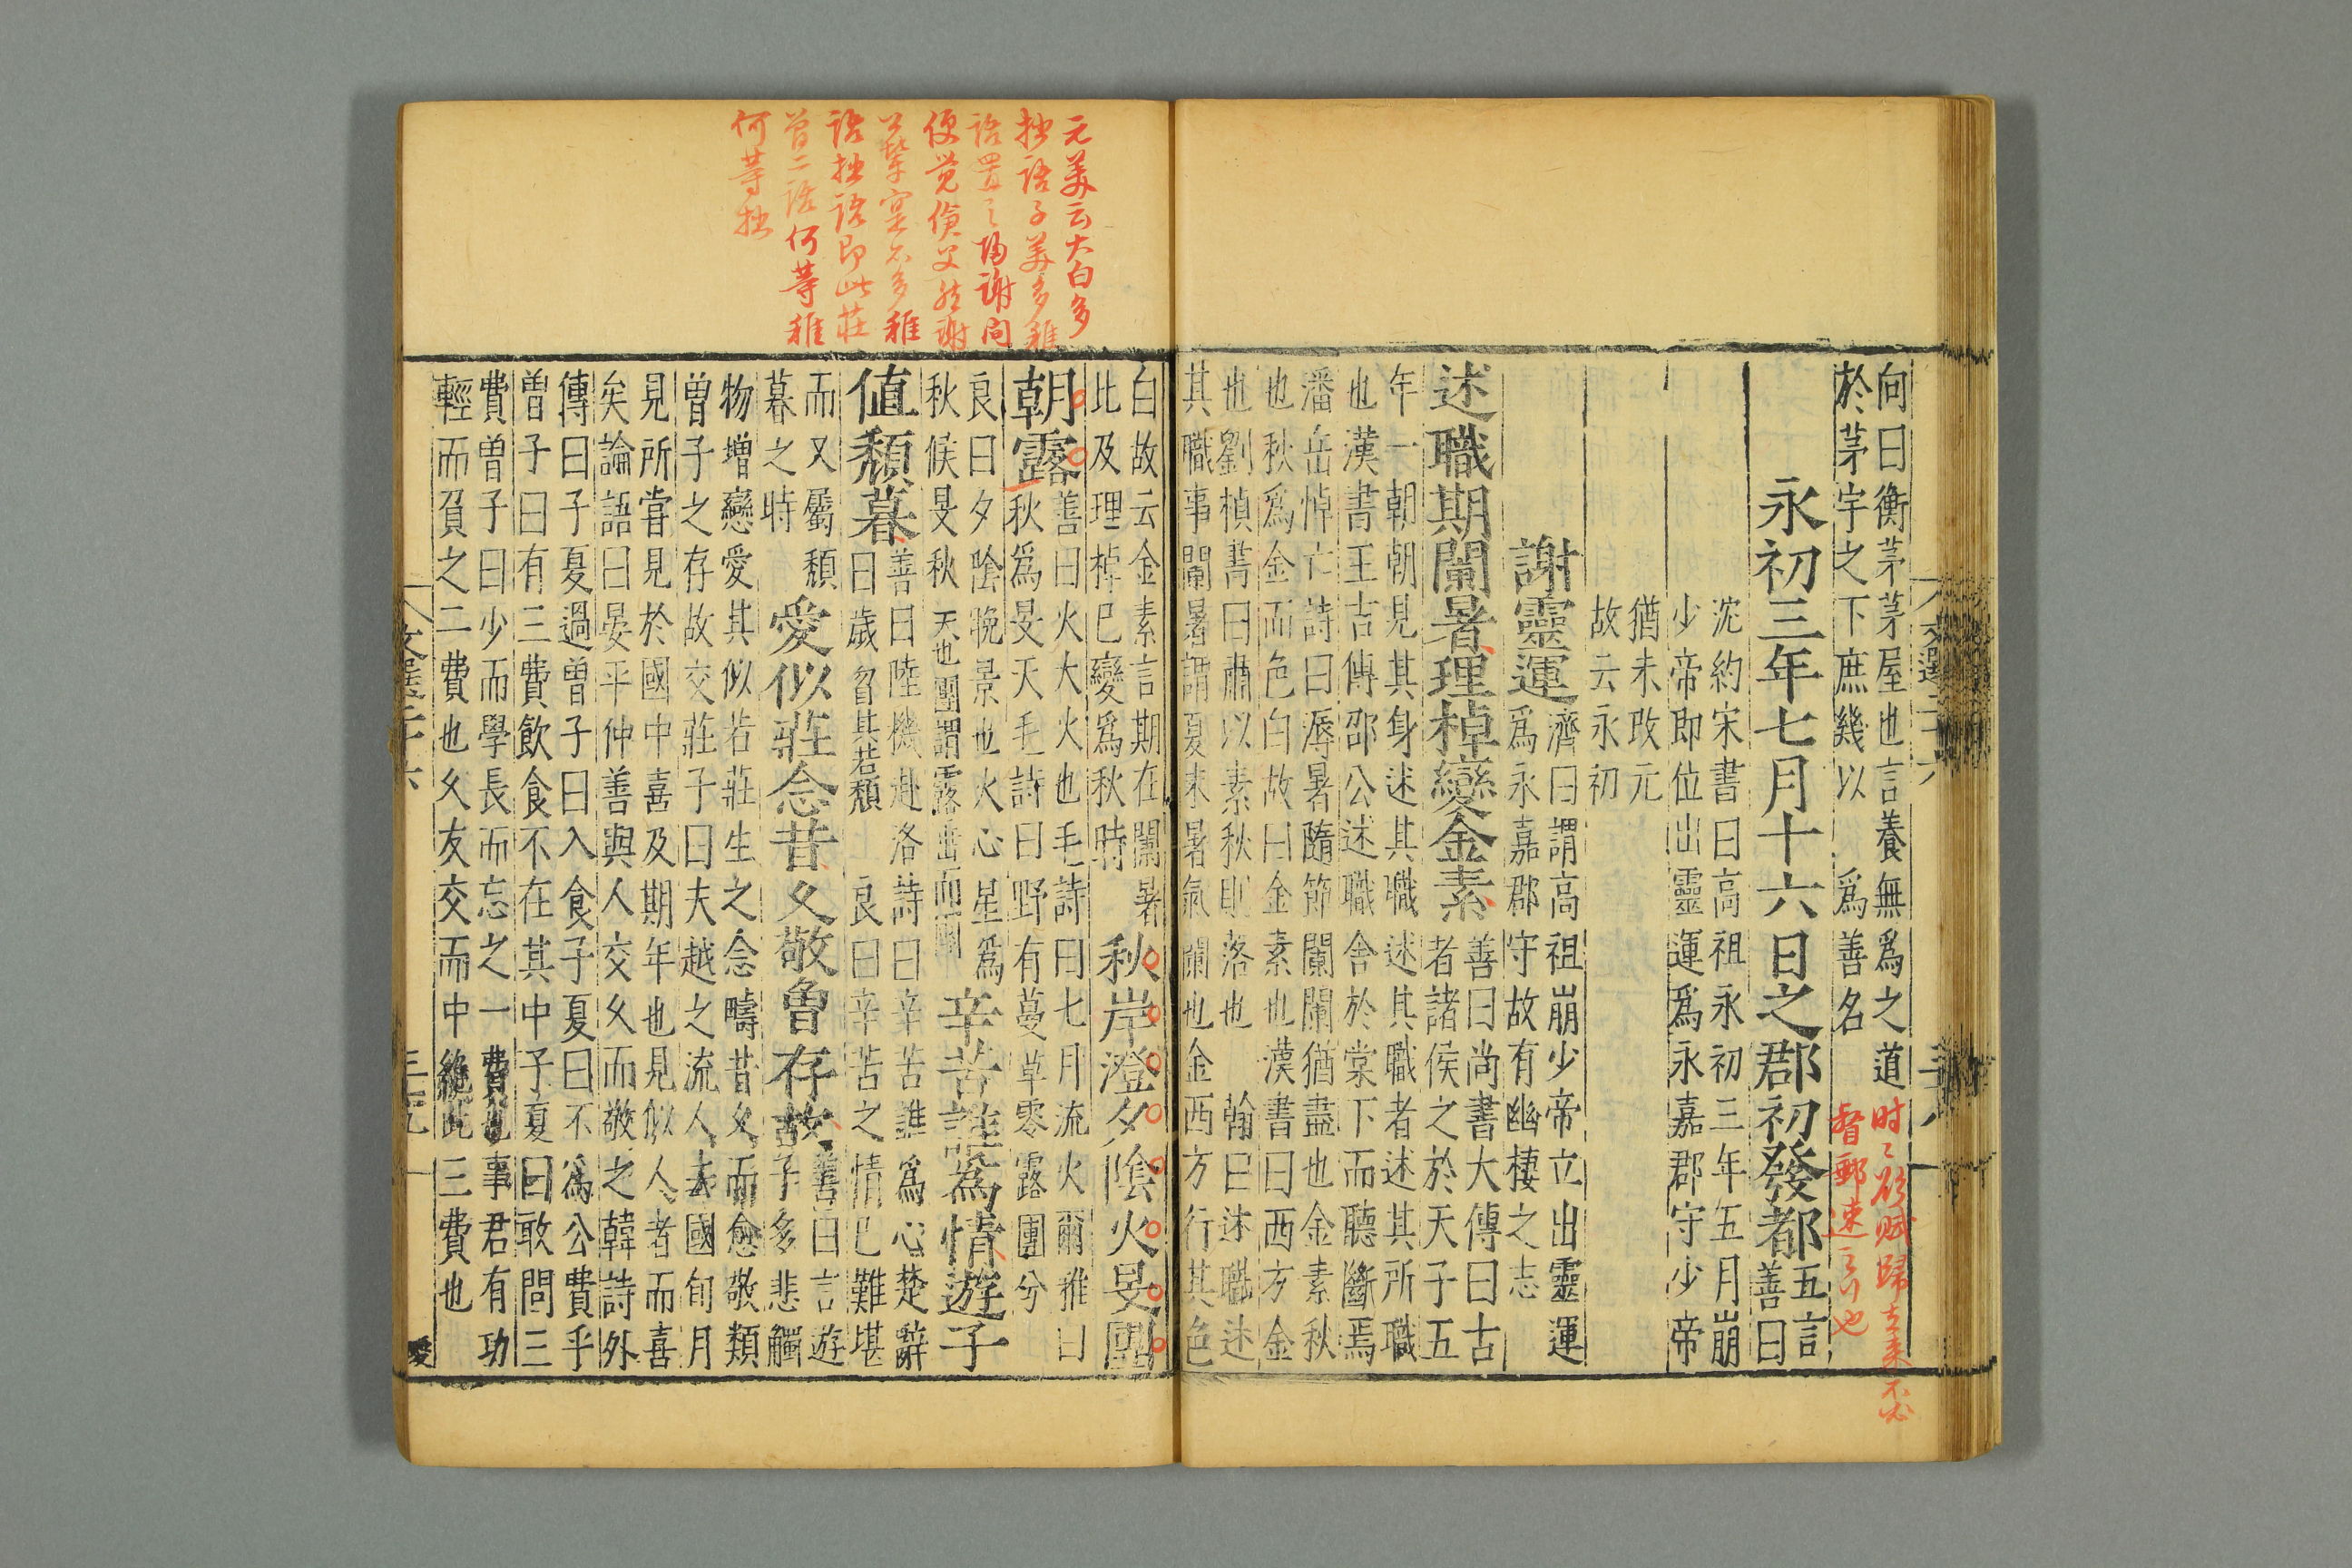 向曰衡茅茅屋也言養無爲之道
於茅宇之下庶幾以爲善名
时〻欲赋歸去来不必
督郵速之也
永初三年七月十六日之郡初發都
五言
善曰
沈約宋書曰高祖永初三年五月崩
少帝即位出靈運爲永嘉郡守少帝
猶未改元
故云永初
謝靈運
濟曰謂高祖崩少帝立出靈運
爲永嘉郡守故有幽棲之志
述職期闌暑理棹變金素
善曰尚書大傳曰古
者諸侯之於天子五
年一朝朝見其身述其職述其職者述其所職
也漢書王吉傳邵公述職舍於棠下而聽斷焉
潘岳悼亡詩曰溽暑隨節闌闌猶盡也金素秋
也秋爲金而色白故曰金素也漢書曰西方金
也劉楨書曰肅以素秋則落也翰曰述職述
其職事闌暑謂夏末暑氣闌也金西方行其色
白故云金素言期在闌暑
此及理棹巳變爲秋時
秋岸澄夕陰火旻團
朝露
善曰火大火也毛詩曰七月流火爾雅曰
秋爲旻天毛詩曰野有蔓草零露團兮
良曰夕陰晚景也火心星爲
秋候旻秋天也團謂露出而團
辛苦誰爲情遊子
值頽暮
善曰陸機赴洛詩曰辛苦誰爲心楚辭
曰歲曶其若頽良曰辛苦之情巳難堪
而又屬頽
暮之時
愛似莊念昔久敬魯存故
善曰言遊
子多悲觸
物增戀愛其似若莊生之念疇昔久而愈敬類
曽子之存故交莊子曰夫越之流人去國旬月
見所嘗見於國中喜及期年也見似人者而喜
矣論語曰晏平仲善與人交久而敬之韓詩外
傳曰子夏過曽子曽子曰入食子夏曰不爲公費乎
曽子曰有三費飲食不在其中子夏曰敢問三
費曽子曰少而學長而忘之一費也事君有功
輕而負之二費也久友交而中絶此三費也
元美云太白多
拙語子美多稚
語置之陶謝間
便覚傖父然謝
客不多稚
語拙語即此莊
曽二語何等稚
何等拙
文選二十六
三十八
文選二十六
三十九